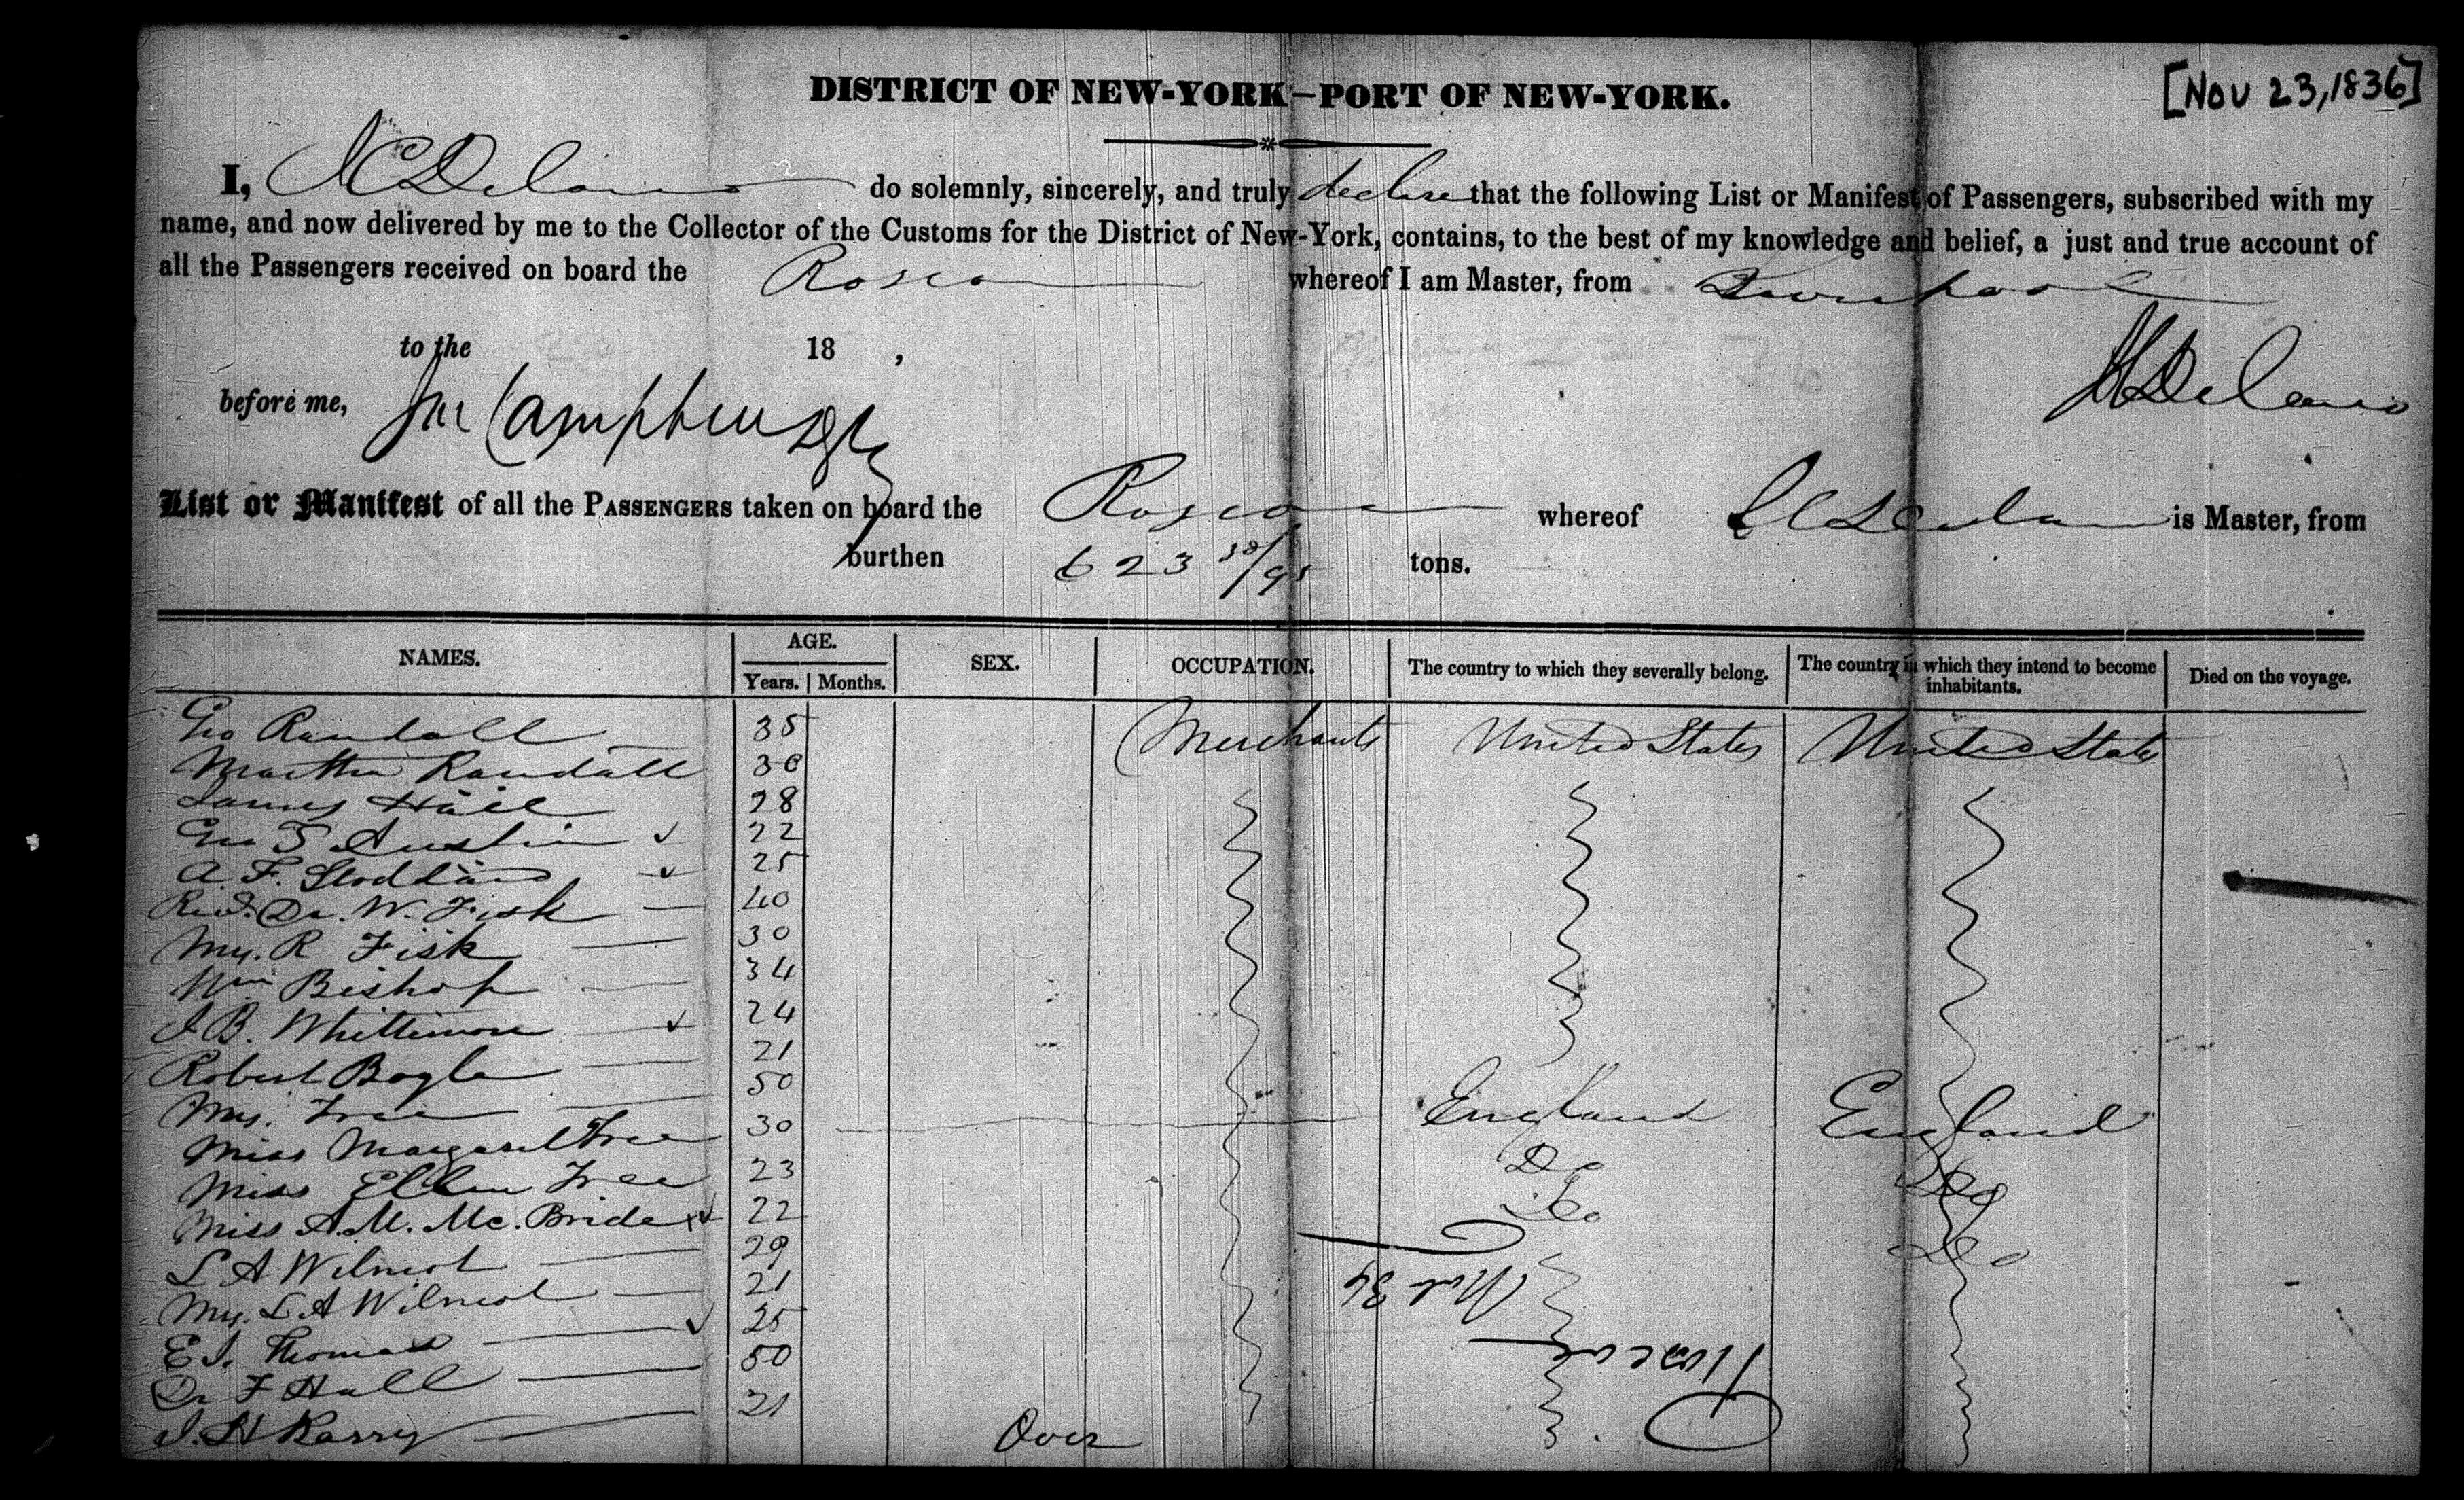 DISTRICT OF NEW-YORK—PORT OF NEW-YORK.
[NOV 23, 1836]
I, JCDelano do solemnly, sincerely, and truly declare that the following List or Manifest of Passengers, subscribed with my
name, and now delivered by me to the Collector of the Customs for the District of New-York, contains, to the best of my knowledge and belief, a just and true account of
all the Passengers received on board the Roscoe whereof I am Master, from Liverpool
to the 18 ,
JCDelano
before me,
List or Manifest of all the PASSENGERS taken on board the Roscoe whereof JCDelano is Master, from
burthen 623 38/95 tons.
NAMES. AGE. Years. Months. SEX. OCCUPATION. The country to which they severally belong. The country in which they intend to become inhabitants. Died on the voyage.
Geo Randall 35 Merchants United States United States
Martha Randall 30
James Hall 28
Geo T Austin 22
A. F. Stoddard 25
Revd. Dr. W. Fisk 40
Mrs. R Fisk 30
Wm Bishop 34
J B. Whittemore 24
Robert Bogle 21
Mrs. Tree 50 England England
Miss Margaret Tree 30 Do Do
Miss Ellen Tree 23 Do Do
Miss A. M. Mc. Bride 22
L A Wilmot 29
Mrs. L A Wilmot 21
E J. Thomas 25
Dr F Hall 50
J. H Barry 21
Over